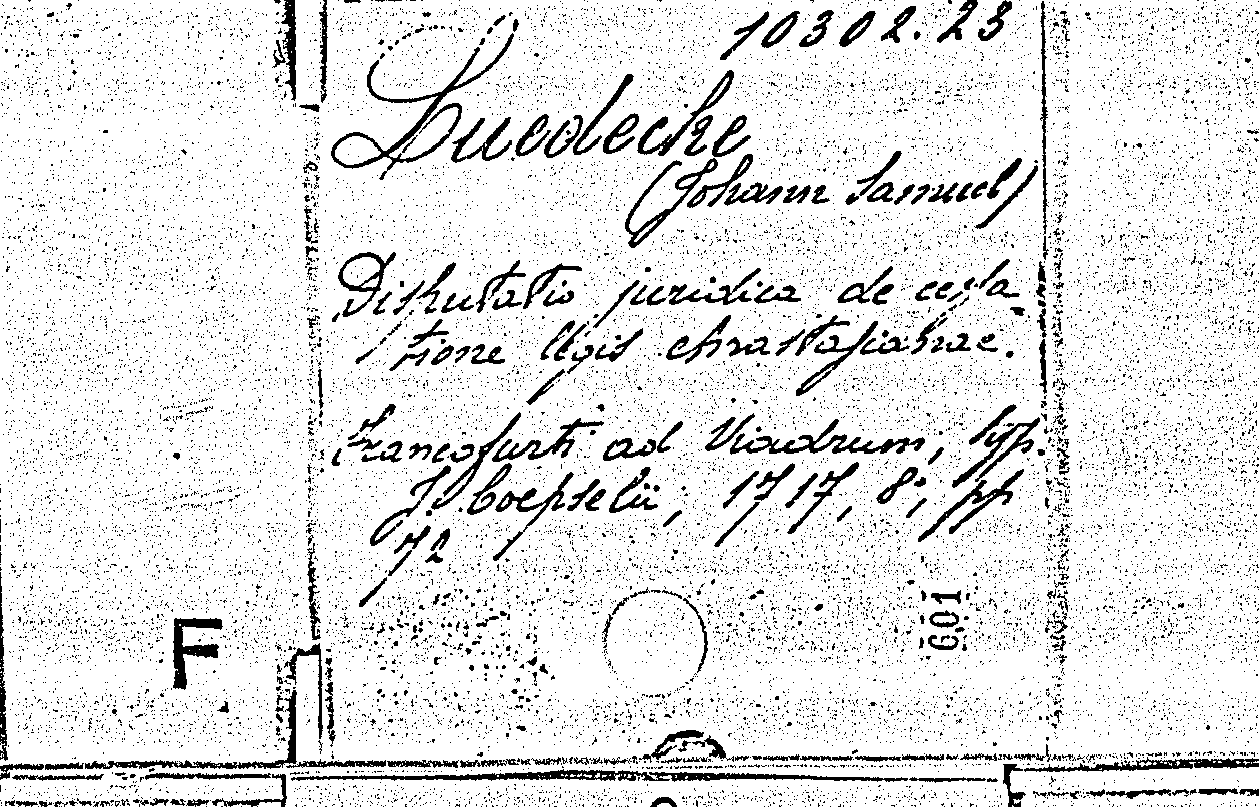 10302.23
Luedecke
(Johann Samuel)
Disputatio juridica de cessa
tione legis Anastasianae.
Francofurti ad Viadrum, typ.
J. Coepselii, 1717, 8°, pp
72
601
F